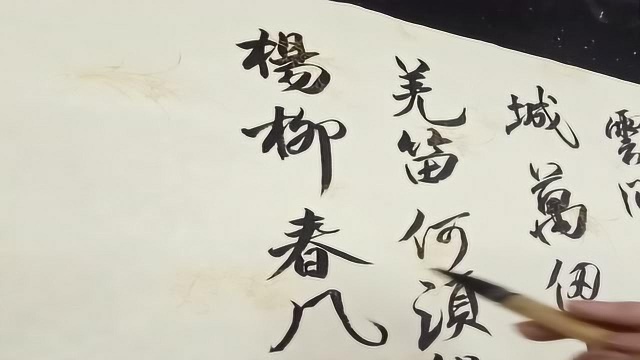 雲
城萬
羌笛何須
楊柳春几